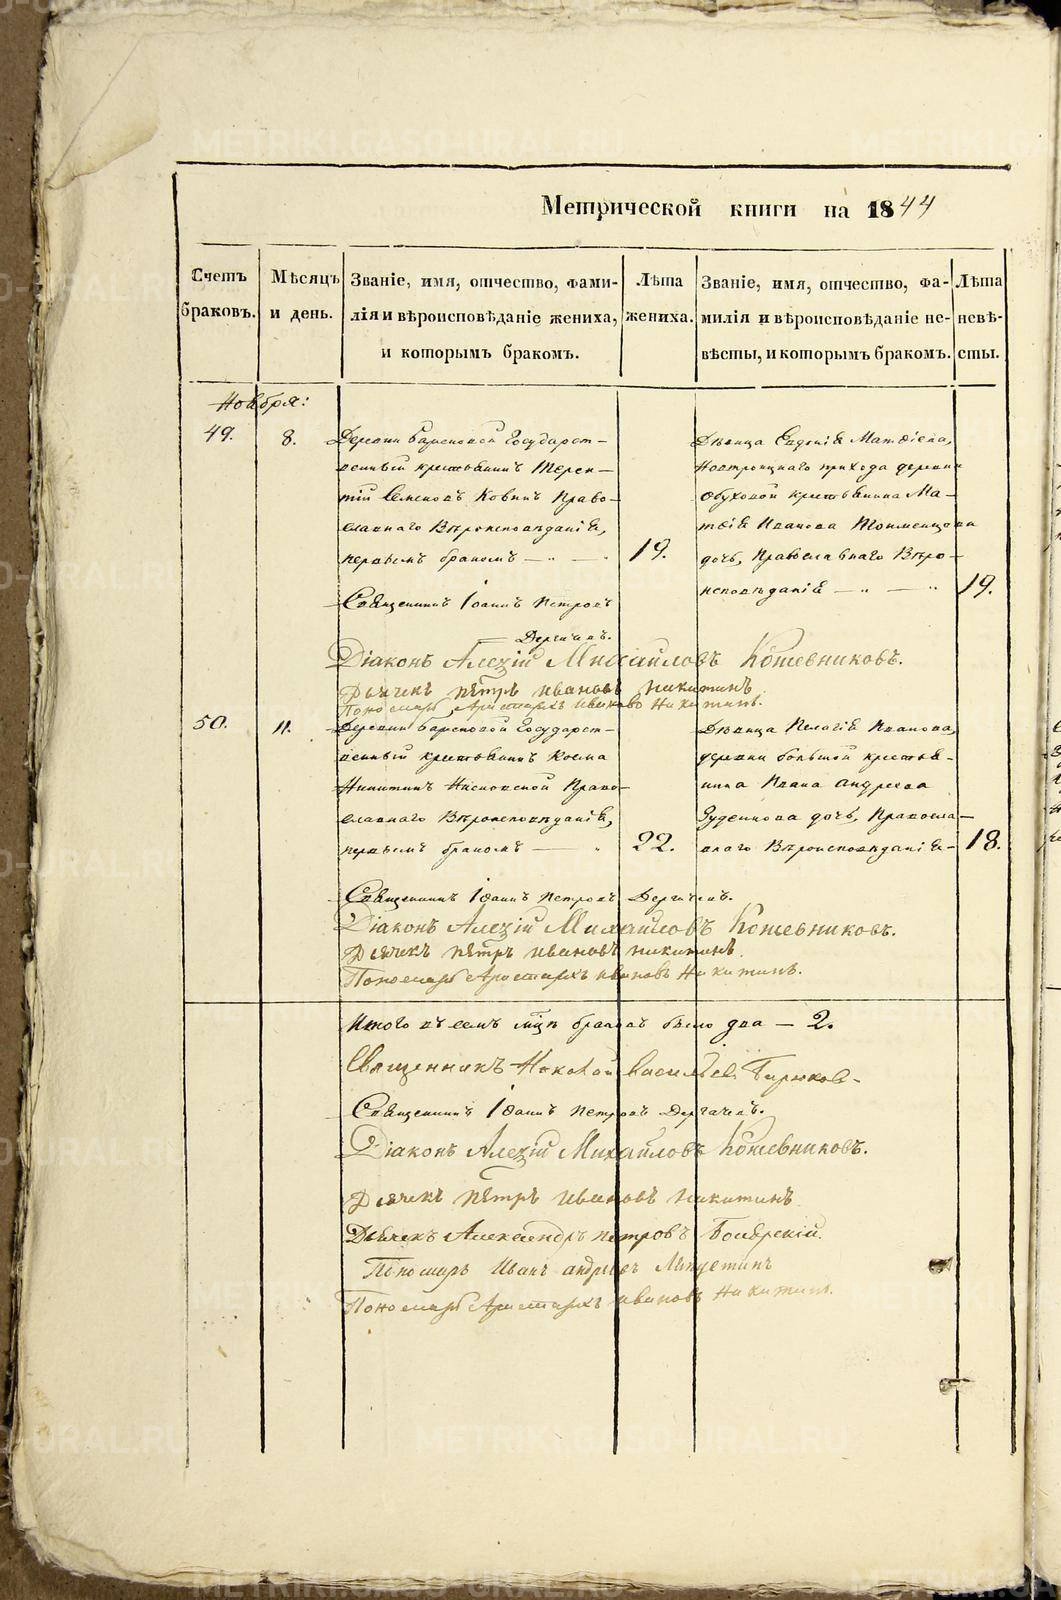 Метрической книги на 1844
Счетъ браковъ.
Мѣсяцъ и день.
Званіе, имя, отчество, фами-
лія и вѣроисповѣданіе жениха,
и которымъ бракомъ.
Лѣта
жениха.
Званіе, имя, отчество, фа-
милія и вѣроисповѣданіе не-
вѣсты, и которымъ бракомъ.
Лѣта
невѣ-
сты.
Ноября:
49.
8.
Деревни Государст-
венный крестьянинъ Терен-
тій Семеновъ Право-
славнаго Вѣроисповѣданія,
первымъ бракомъ —
19.
Дѣвица Евдокія Матѳіева,
прихода деревни
Обуховой крестьянина Ма-
тѳія Иванова
дочь, Православнаго Вѣро-
исповѣданія —
19.
Священникъ Іоаннъ Петровъ
Дергачевъ.
Діаконъ Алексій Михайловъ Кожевниковъ.
Дьячекъ Пётръ Ивановъ Никитинъ
Пономарь Аристархъ Ивановъ Никитинъ.
50.
11.
Деревни Государст-
венный крестьянинъ Косма
Никитинъ Право-
славнаго Вѣроисповѣданія,
первымъ бракомъ —
22.
Дѣвица Пелагія Иванова,
деревни большой крестья-
нина Ивана Андреева
дочь, Правосла-
внаго Вѣроисповѣданія —
18.
Священникъ Іоаннъ Петровъ Дергачевъ.
Діаконъ Алексій Михайловъ Кожевниковъ.
Дьячекъ Пётръ Ивановъ Никитинъ
Пономарь Аристархъ Ивановъ Никитинъ.
Итого въ семъ мцѣ браковъ было два — 2.
Священникъ Васильев Бирюков
Священникъ Іоаннъ Петровъ Дергачевъ.
Діаконъ Алексій Михайловъ Кожевниковъ.
Дьячекъ Пётръ Ивановъ Никитинъ
Дьячекъ Александръ Петровъ Боярскій.
Пономарь Иванъ Андреевъ
Пономарь Аристархъ Ивановъ Никитинъ.
METRIKI.GASO-URAL.RU